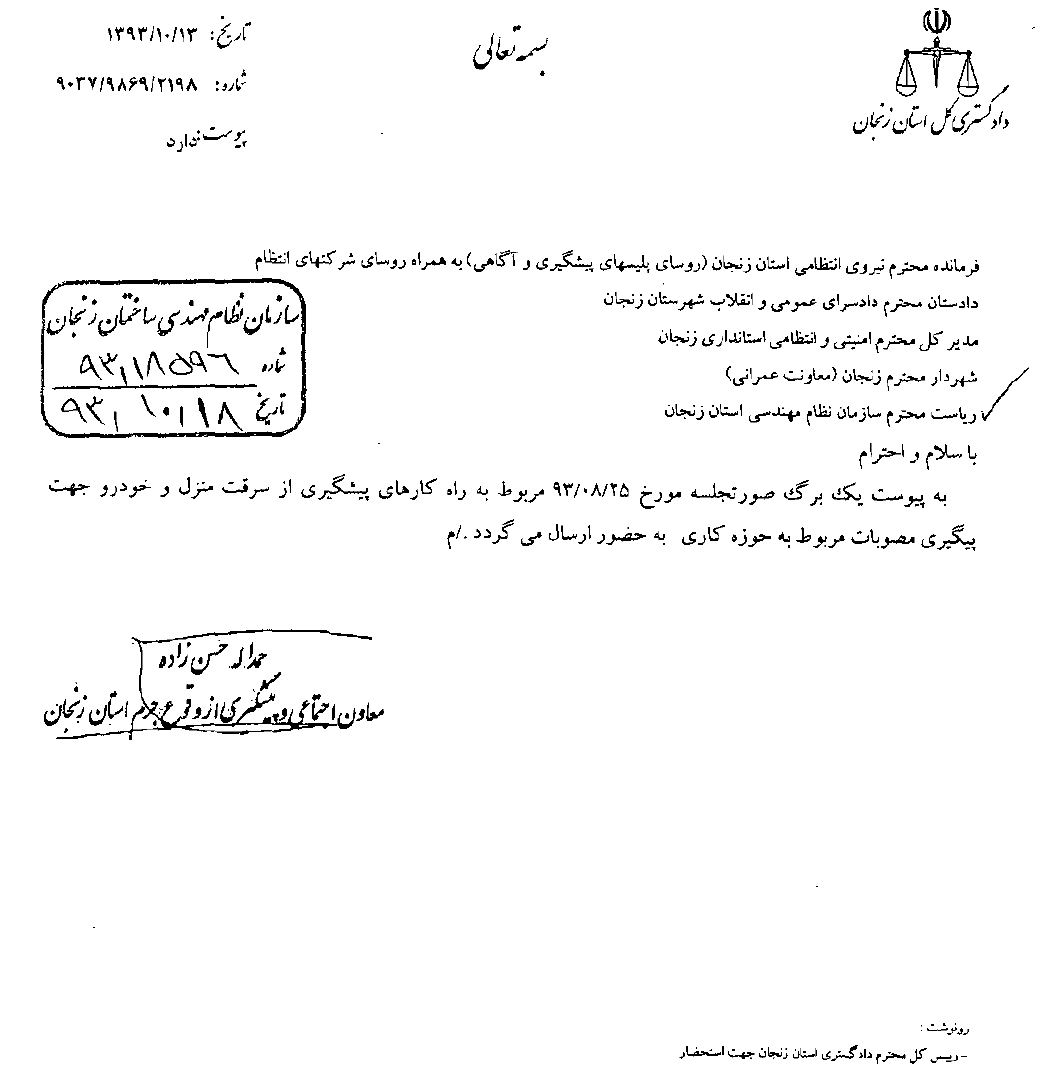 دادگستری کل استان زنجان
بسمه تعالی
تاریخ: ۱۳۹۳/۱۰/۱۳
شماره: ۹۰۳۷/۹۸۶۹/۲۱۹۸
پیوست ندارد
فرمانده محترم نیروی انتظامی استان زنجان (روسای پلیسهای پیشگیری و آگاهی) به همراه روسای شرکتهای انتظام
دادستان محترم دادسرای عمومی و انقلاب شهرستان زنجان
مدیر کل محترم امنیتی و انتظامی استانداری زنجان
شهردار محترم زنجان (معاونت عمرانی)
ریاست محترم سازمان نظام مهندسی استان زنجان
سازمان نظام مهندسی ساختمان زنجان
شماره ۹۳,۱۸۵۹۶
تاریخ ۹۳,۱۰,۱۸
با سلام و احترام
به پیوست یک برگ صورتجلسه مورخ ۹۳/۰۸/۲۵ مربوط به راه کارهای پیشگیری از سرقت منزل و خودرو جهت
پیگیری مصوبات مربوط به حوزه کاری به حضور ارسال می گردد ./م
حمداله حسن زاده
معاون اجتماعی و پیشگیری از وقوع جرم استان زنجان
رونوشت :
-رییس کل محترم دادگستری استان زنجان جهت استحضار